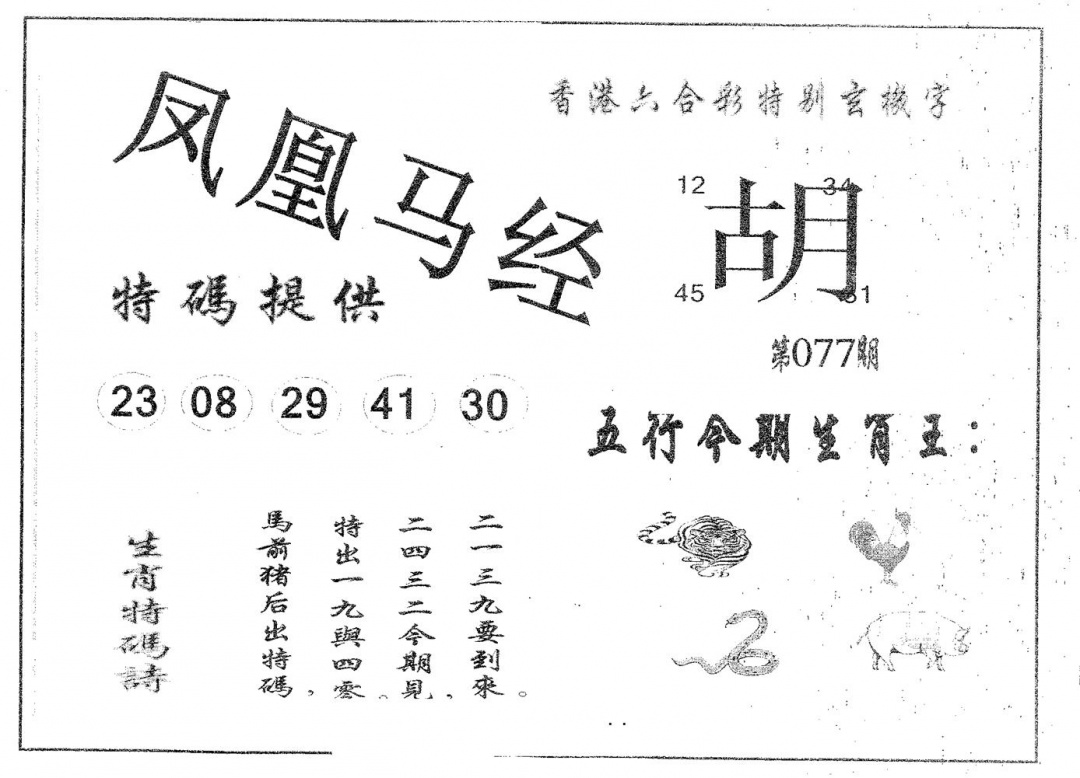 香港六合彩特别玄機字
凤凰马经
12 34
胡
45 31
特碼提供
第077期
23 08 29 41 30
五行今期生肖王：
生肖特碼詩
馬前猪后出特碼，
特出一九與四零。
二四三二今期見，
二一三九要到來。